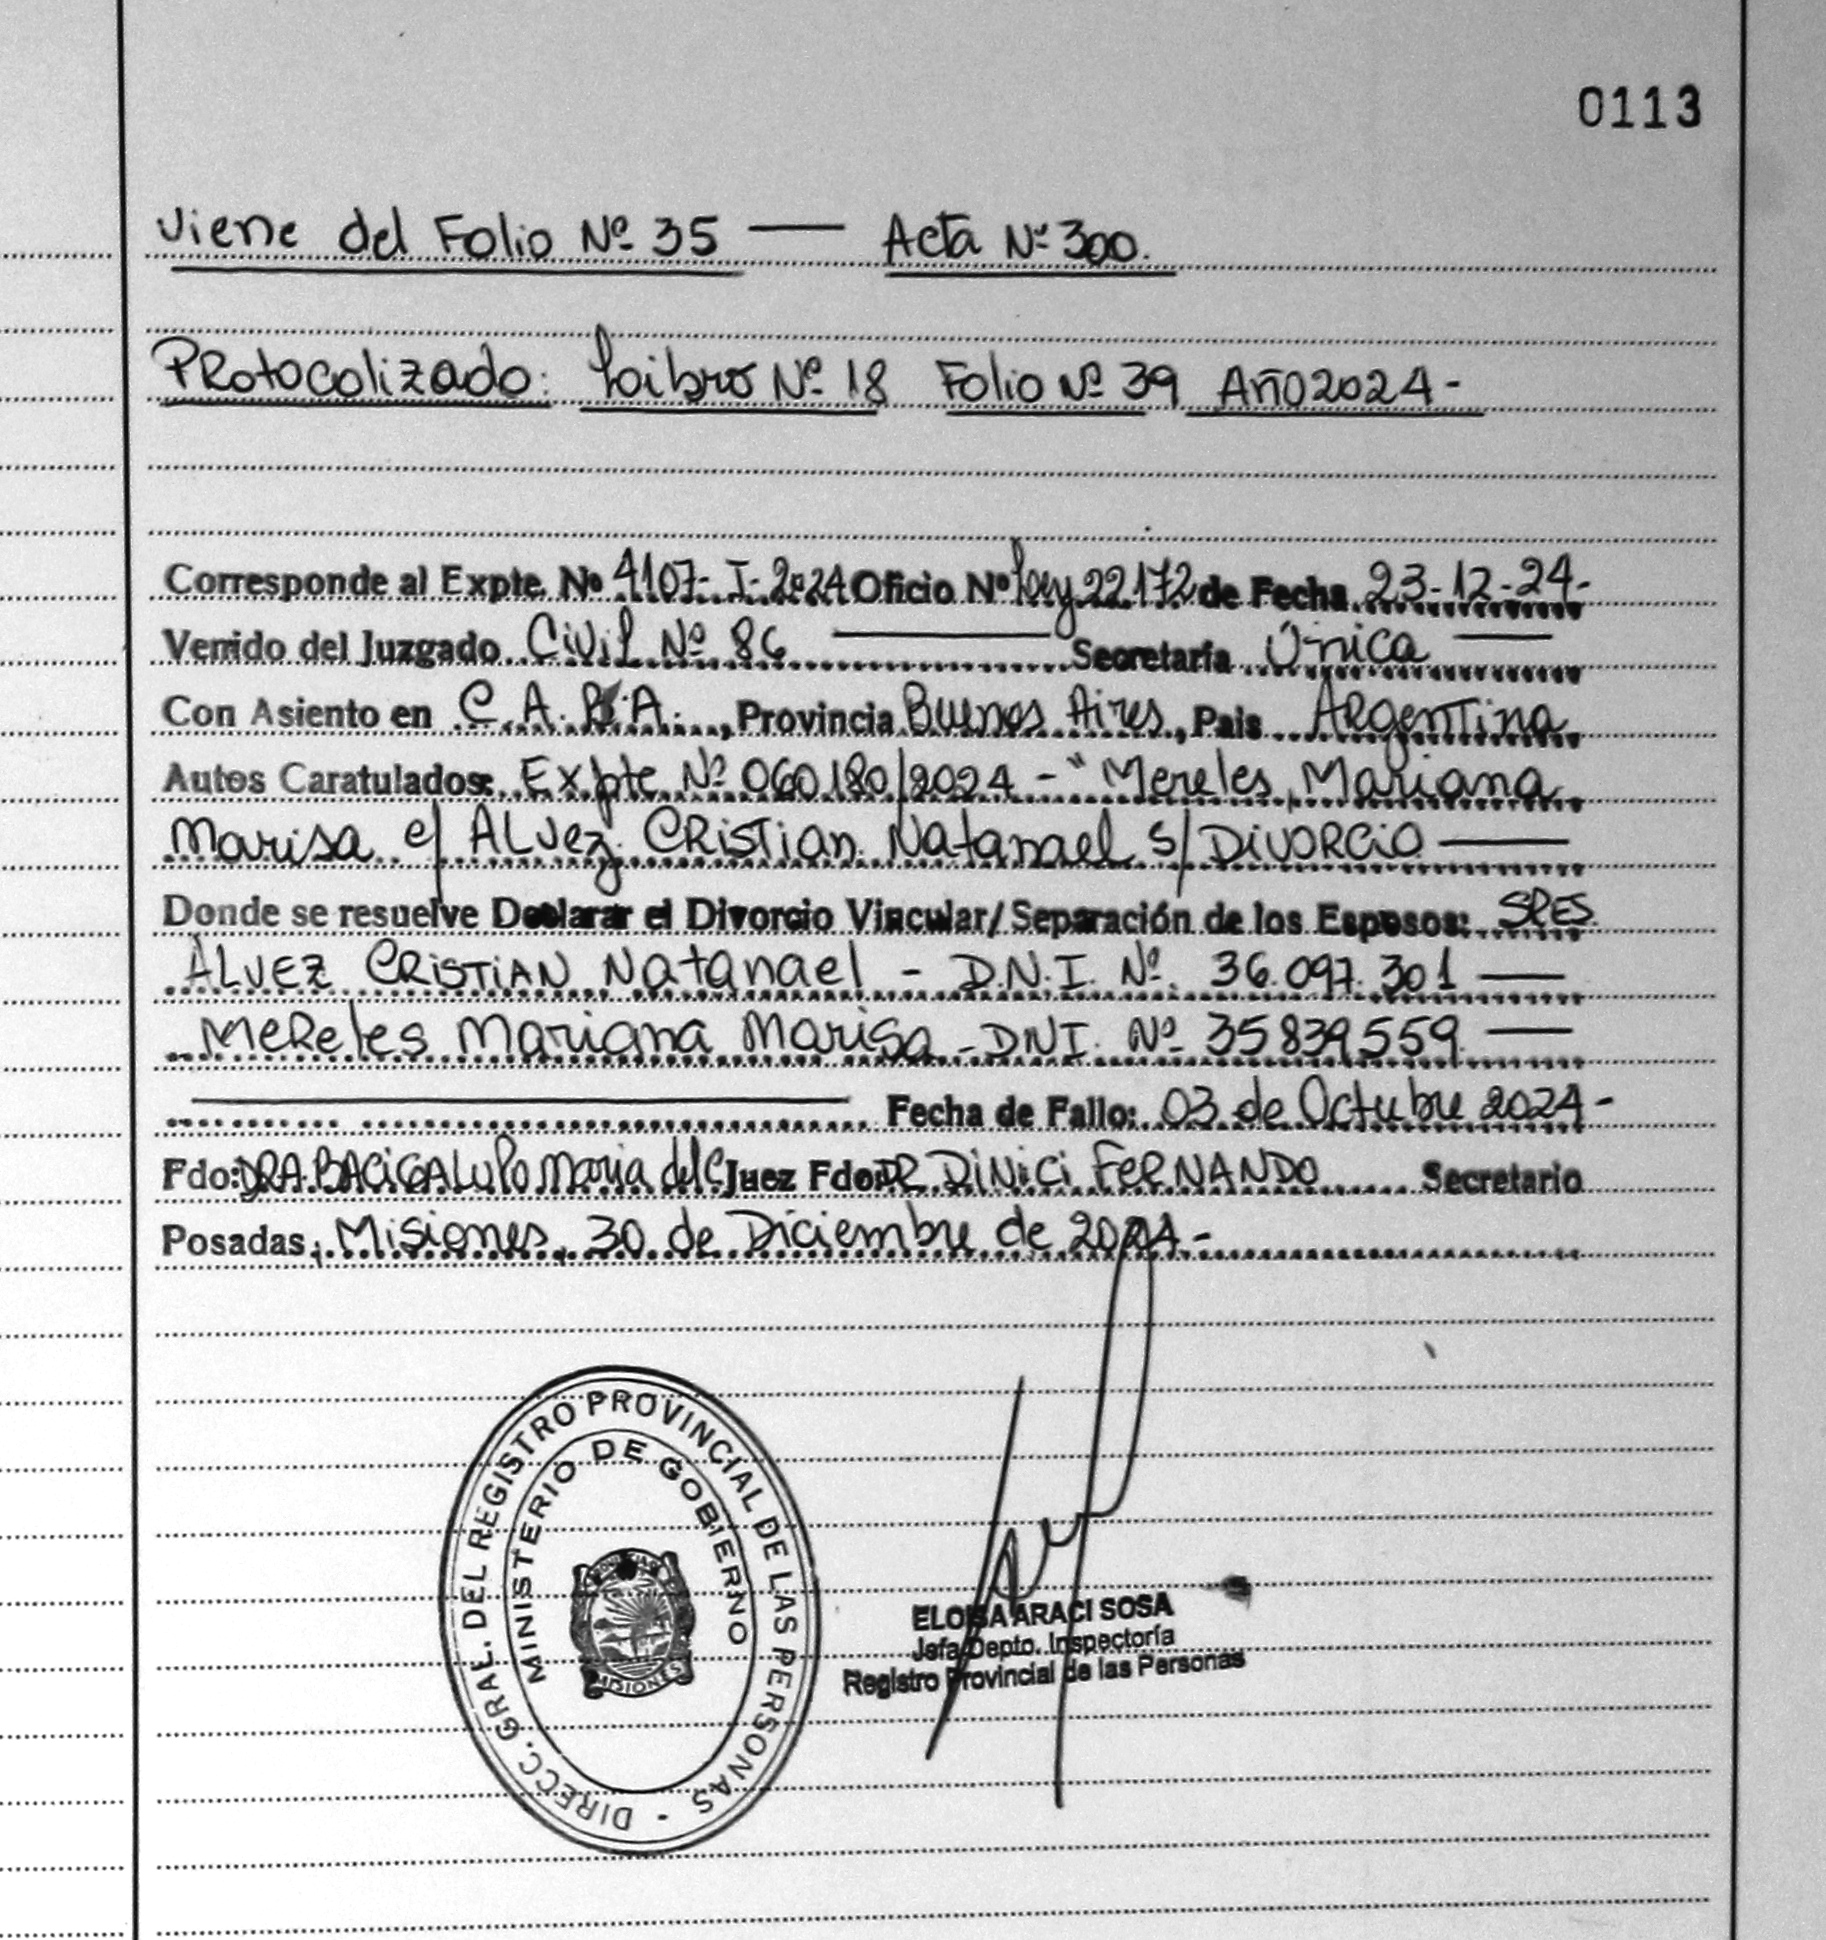 0113
Viene del Folio Nº 35 — Acta Nº 300.
Protocolizado: Loibro Nº 18 Folio Nº 39 Año 2024-
Corresponde al Expte. Nº 4107-I-2024 Oficio Nº Ley 22.172 de Fecha 23-12-24-
Venido del Juzgado Civil Nº 86 — Secretaría Única —
Con Asiento en C.A.B.A., Provincia Buenos Aires, Pais Argentina
Autos Caratulados: Expte Nº 060.180/2024 - "Mereles, Mariana
Marisa c/ Alvez Cristian Natanael s/ Divorcio —
Donde se resuelve Declarar el Divorcio Vincular/ Separación de los Esposos: SRES.
Alvez Cristian Natanael - D.N.I. Nº 36.097.301 —
Mereles Mariana Marisa - DNI. Nº 35839559 —
— Fecha de Fallo: 03 de Octubre 2024-
Fdo: DRA. BACiGALUPO Maria del C Juez Fdo: DR DINiCi FERNANDO Secretario
Posadas, Misiones, 30 de Diciembre de 2024-
DIRECC. GRAL. DEL REGISTRO PROVINCIAL DE LAS PERSONAS -
MINISTERIO DE GOBIERNO
MISIONES
ELOISA ARACI SOSA
Jefa Depto. Inspectoría
Registro Provincial de las Personas